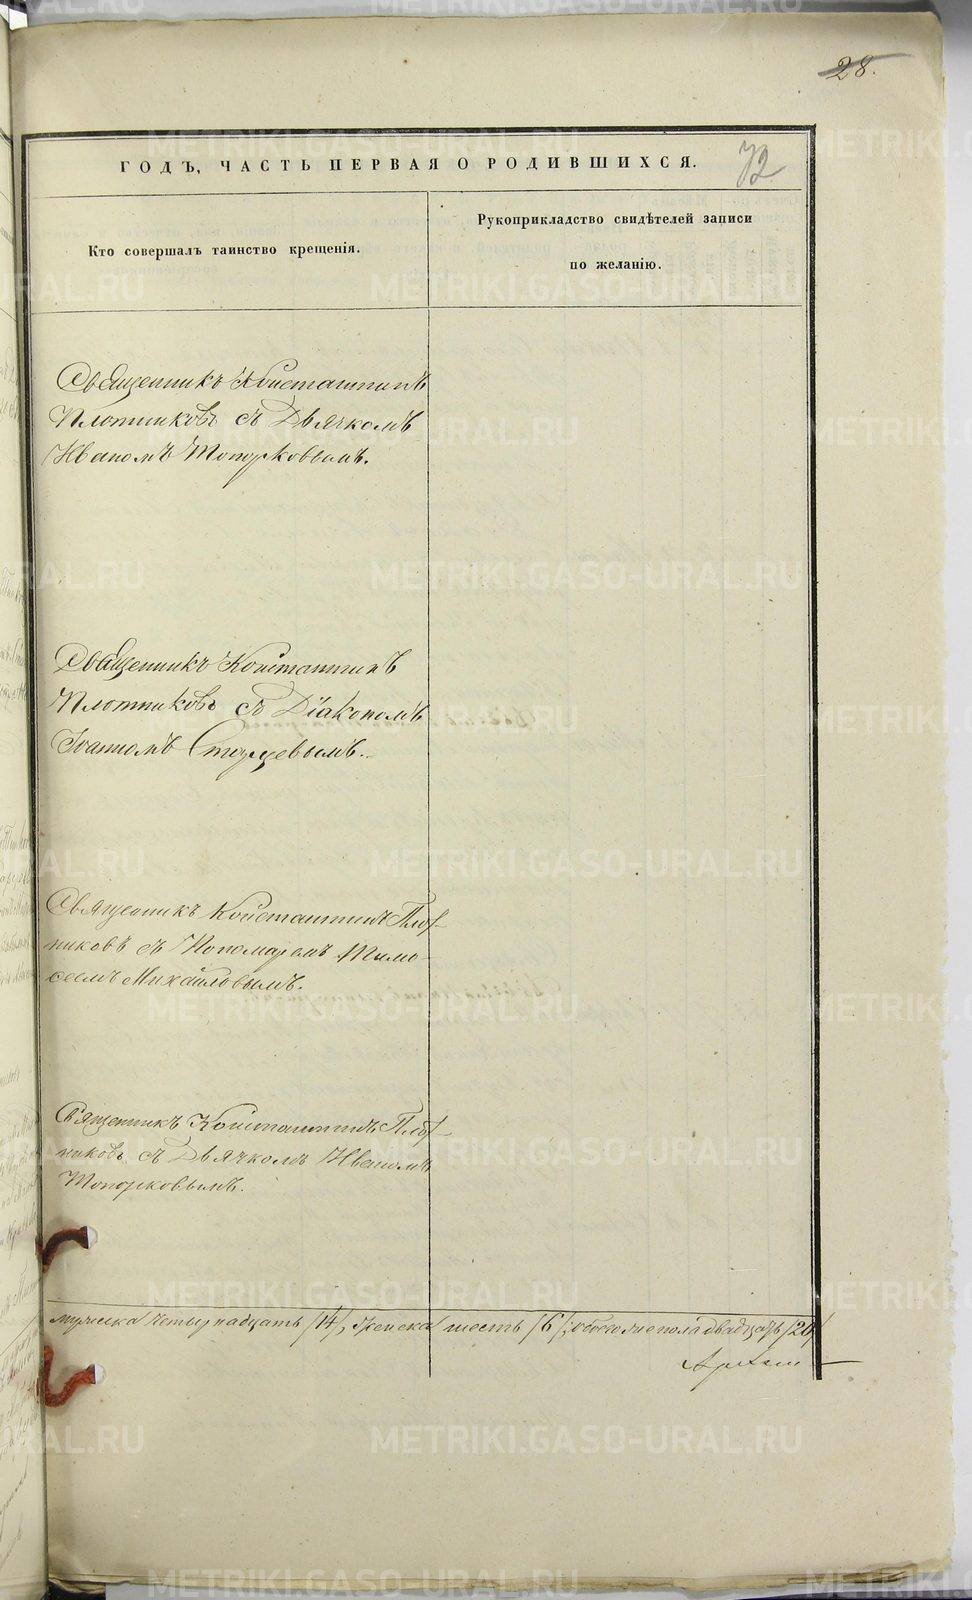 28.
ГОДЪ, ЧАСТЬ ПЕРВАЯ О РОДИВШИХСЯ. 72
Кто совершалъ таинство крещенія.
Рукоприкладство свидѣтелей записи
по желанію.
Священникъ Константинъ
Плотниковъ съ Дьячкомъ
Иваномъ Топорковымъ.
Священникъ Константинъ
Плотниковъ съ Діакономъ
Іоанномъ Стузевымъ.
Священникъ Константинъ Плот-
никовъ съ Пономаремъ Тимо-
сеемъ Михайловымъ.
Священникъ Константинъ Плот-
никовъ съ Дьячкомъ Иваномъ
Топорковымъ.
мужеска четырнадцать /14/, женска шесть /6/, обоего пола двадцать /20/
METRIKI.GASO-URAL.RU